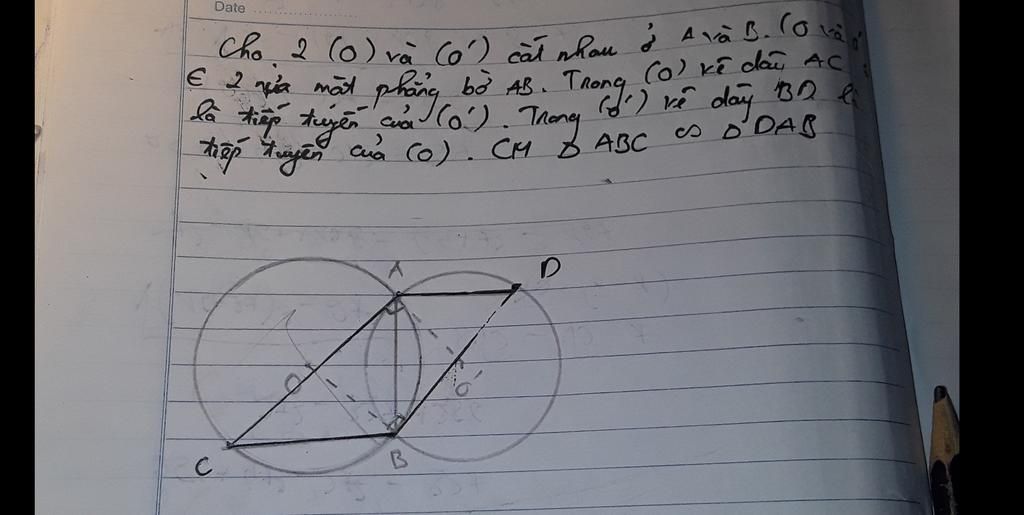 Date
Cho 2 (O) và (O') cắt nhau ở A và B. (O và O'
∈ 2 nửa mặt phẳng bờ AB. Trong (O) kẻ dây AC
là tiếp tuyến của (O'). Trong (O') kẻ dây BD là
tiếp tuyến của (O). CM Δ ABC ∽ Δ DAB
A
D
O
O'
C
B